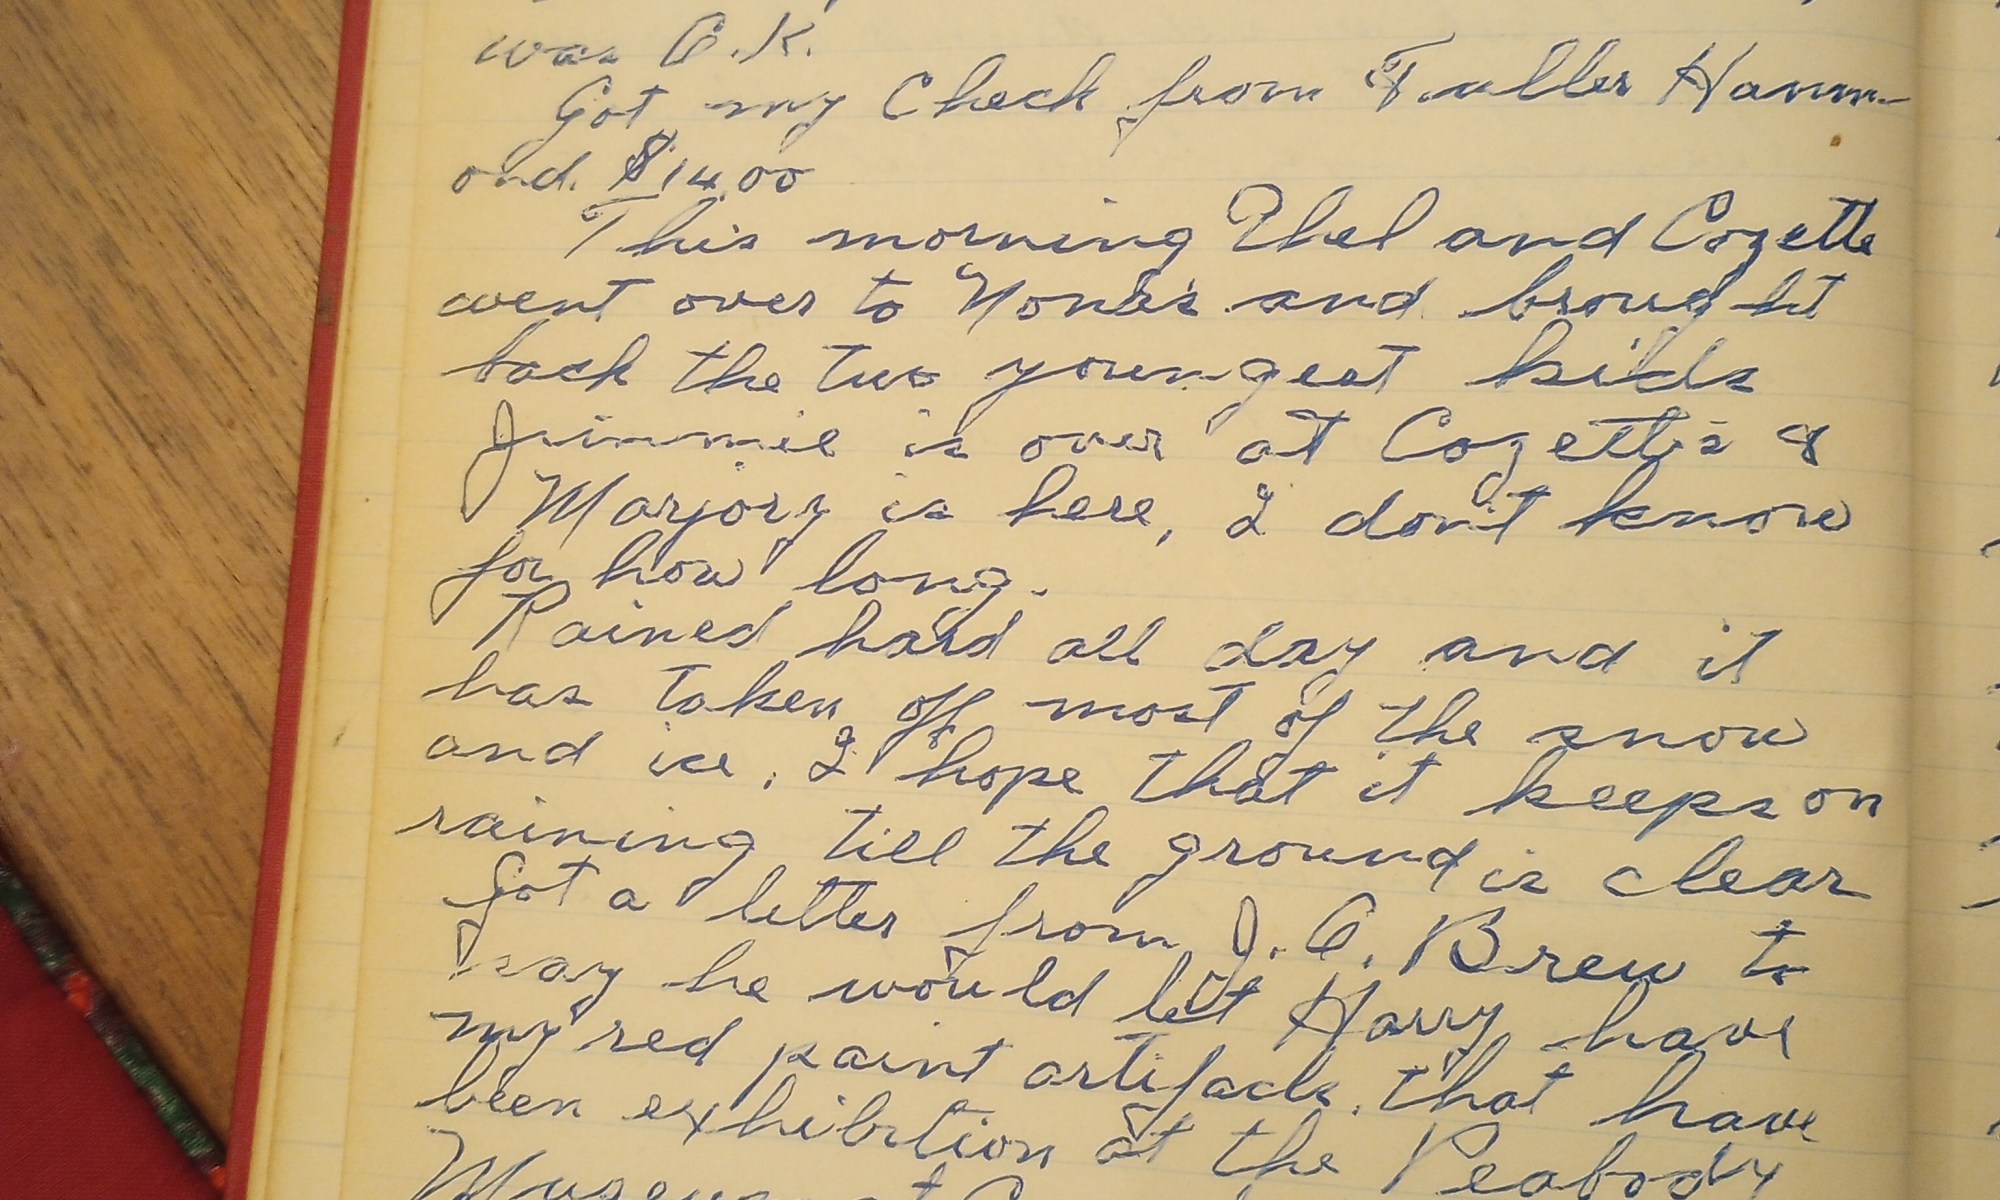 was O.K.
Got my Check from Fuller Hamm-
ond. $14.00
This morning Ethel and Cozette
went over to Nona's and brought
back the two youngest kids
Jimmie is over at Cozette's &
Marjory is here, I don't know
for how long.
Rained hard all day and it
has taken off most of the snow
and ice, I hope that it keeps on
raining till the ground is clear
Got a letter from J. O. Brew to
say he would let Harry have
my red paint artifacts that have
been exhibition at the Peabody
Museum at